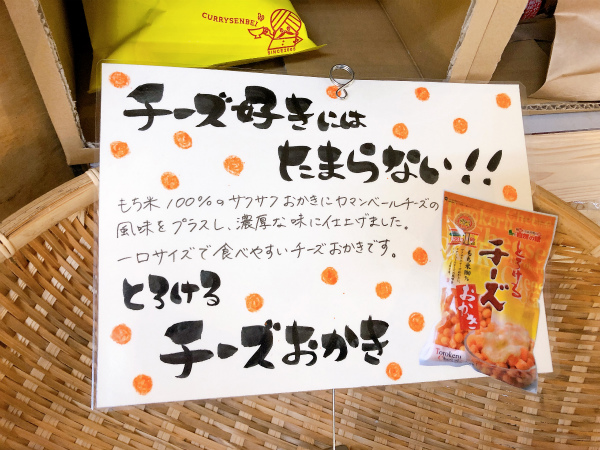 CURRYSENBEI
チーズ好きには
たまらない!!
もち米100%のサクサクおかきにカマンベールチーズの
風味をプラスし、濃厚な味に仕上げました。
一口サイズで食べやすいチーズおかきです。
とろける
チーズおかき
とろける
チーズ
おかき
Torokeru